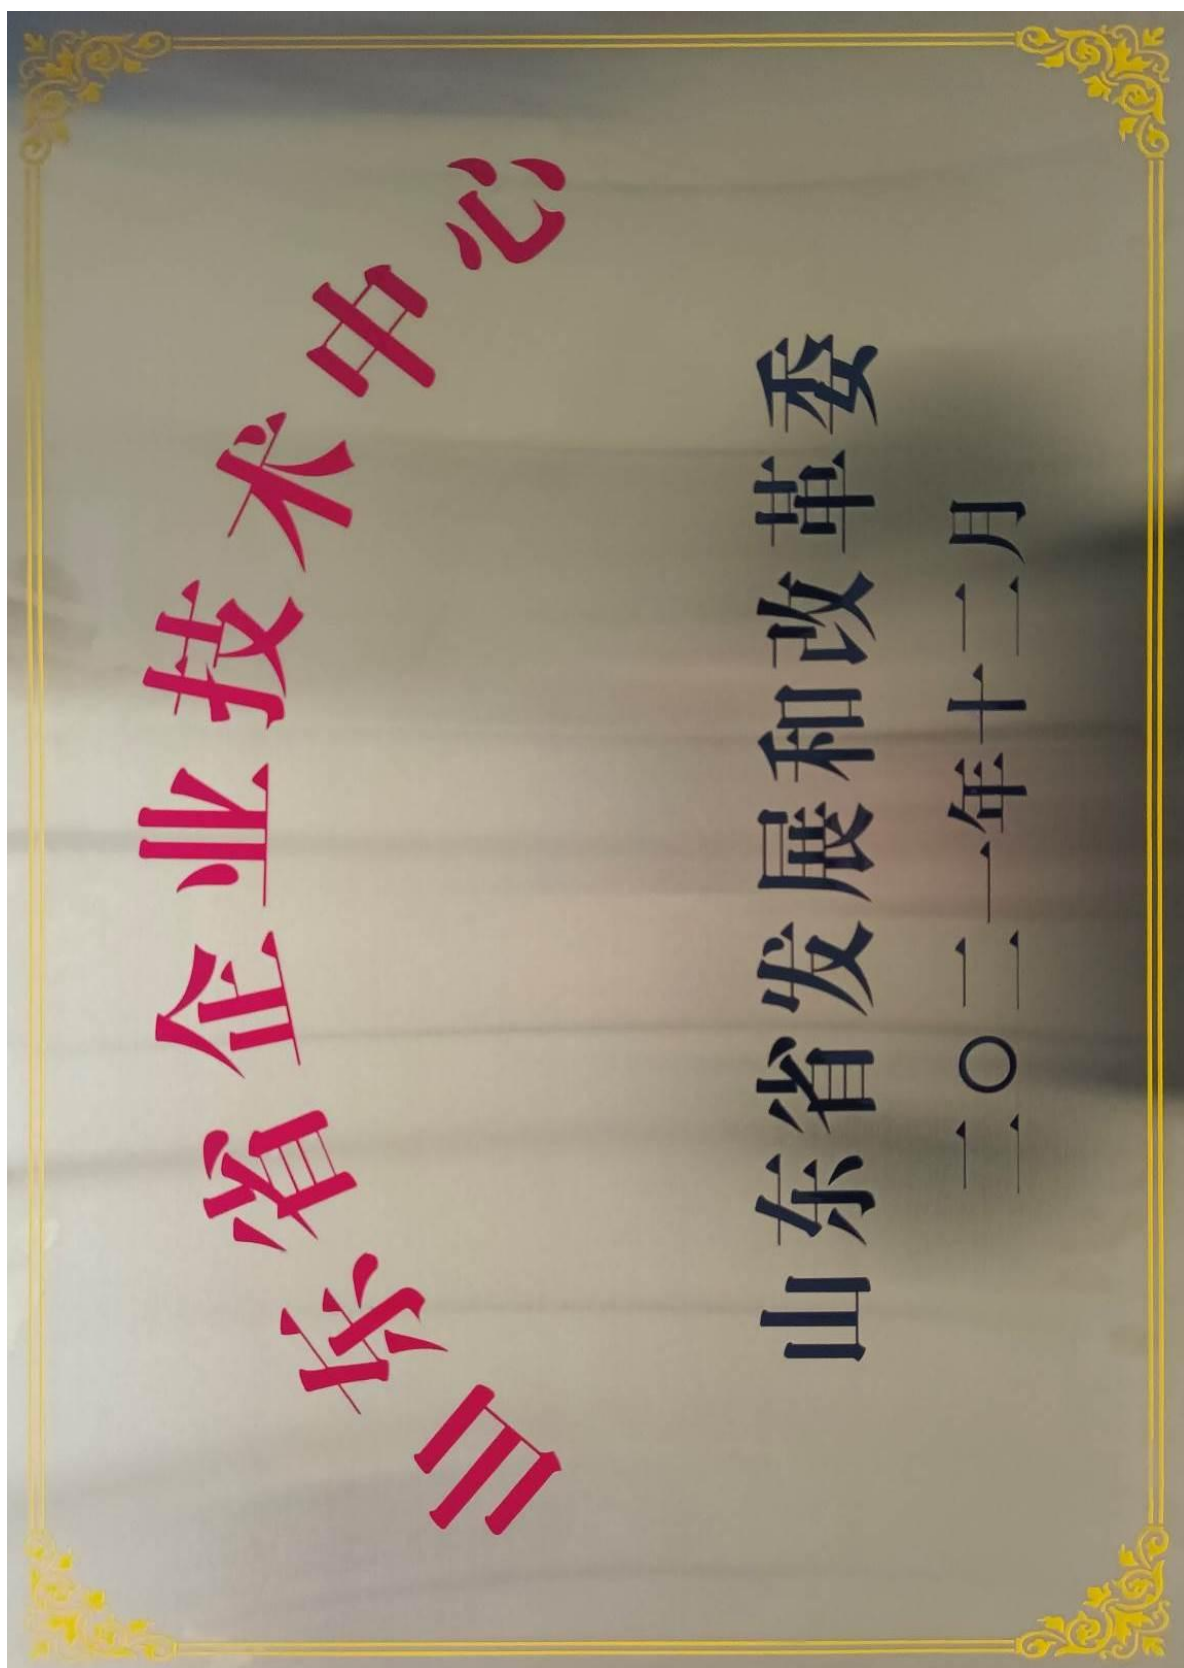 山东省企业技术中心
山东省发展和改革委
二〇二一年十二月